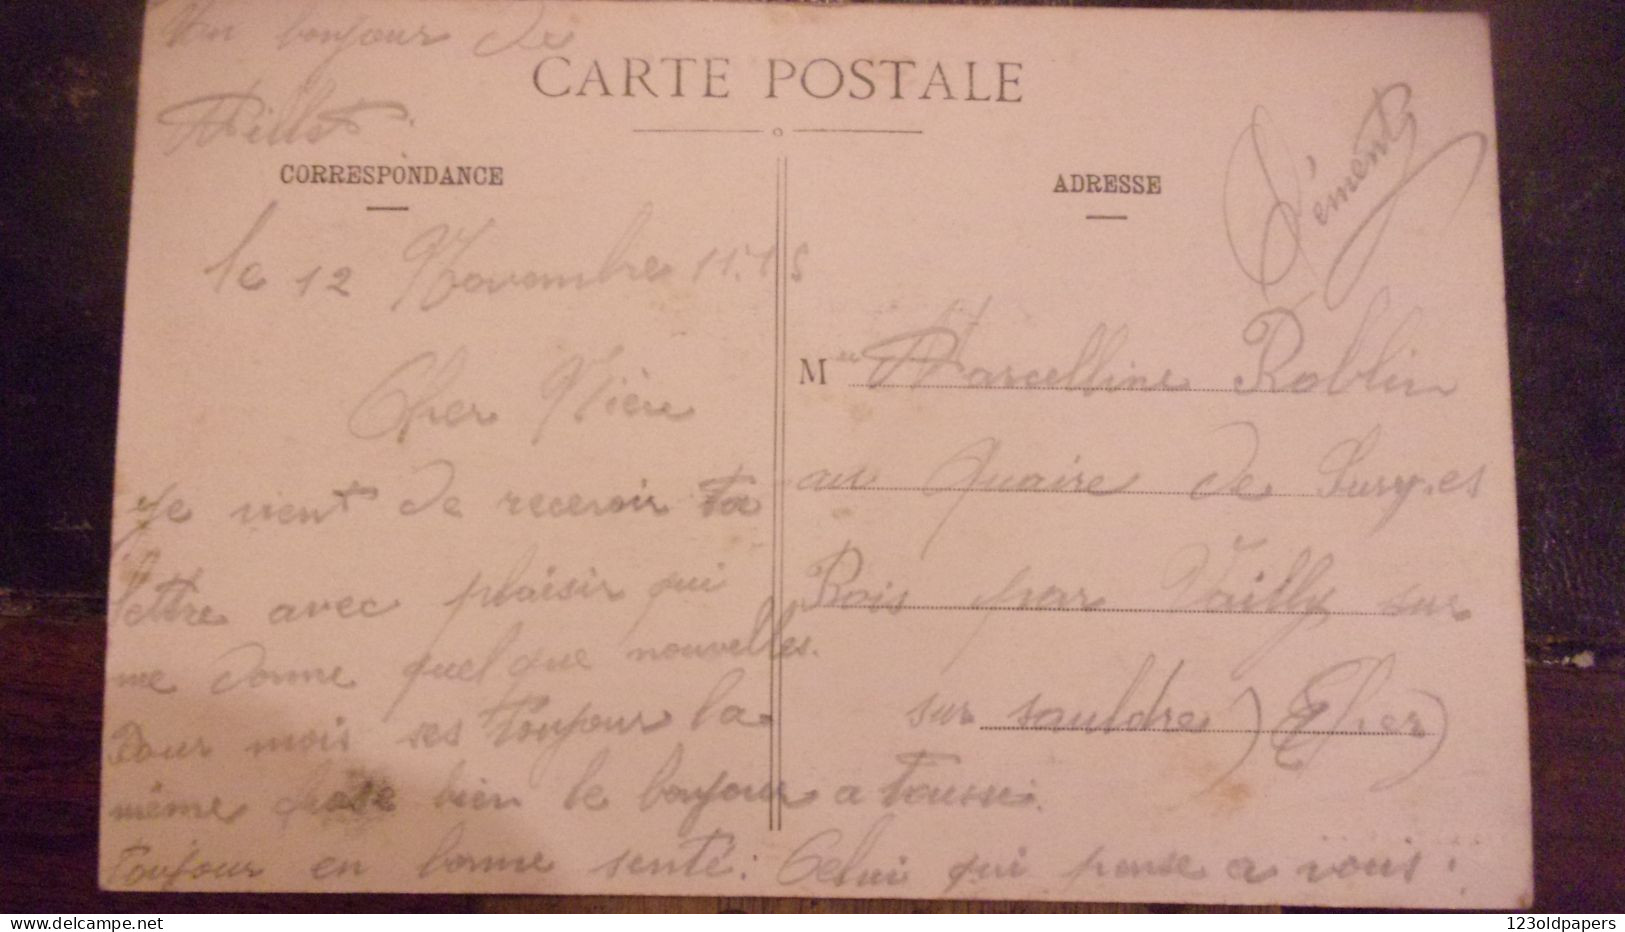 Un bonjour de
CARTE POSTALE
CORRESPONDANCE
ADRESSE
le 12 Novembre 1915
Cher Mère
Je vient de recevoir ta
lettre avec plaisir qui
me donne quelque nouvelles.
Pour mois ses toujour la
même chose bien le bonjour a tousse.
toujour en bonne senté : Celui qui pense a vous :
M Marcelline Roblin
au Quaire de
Bois par Vailly sur
sur sauldre (Cher)
123oldpapers